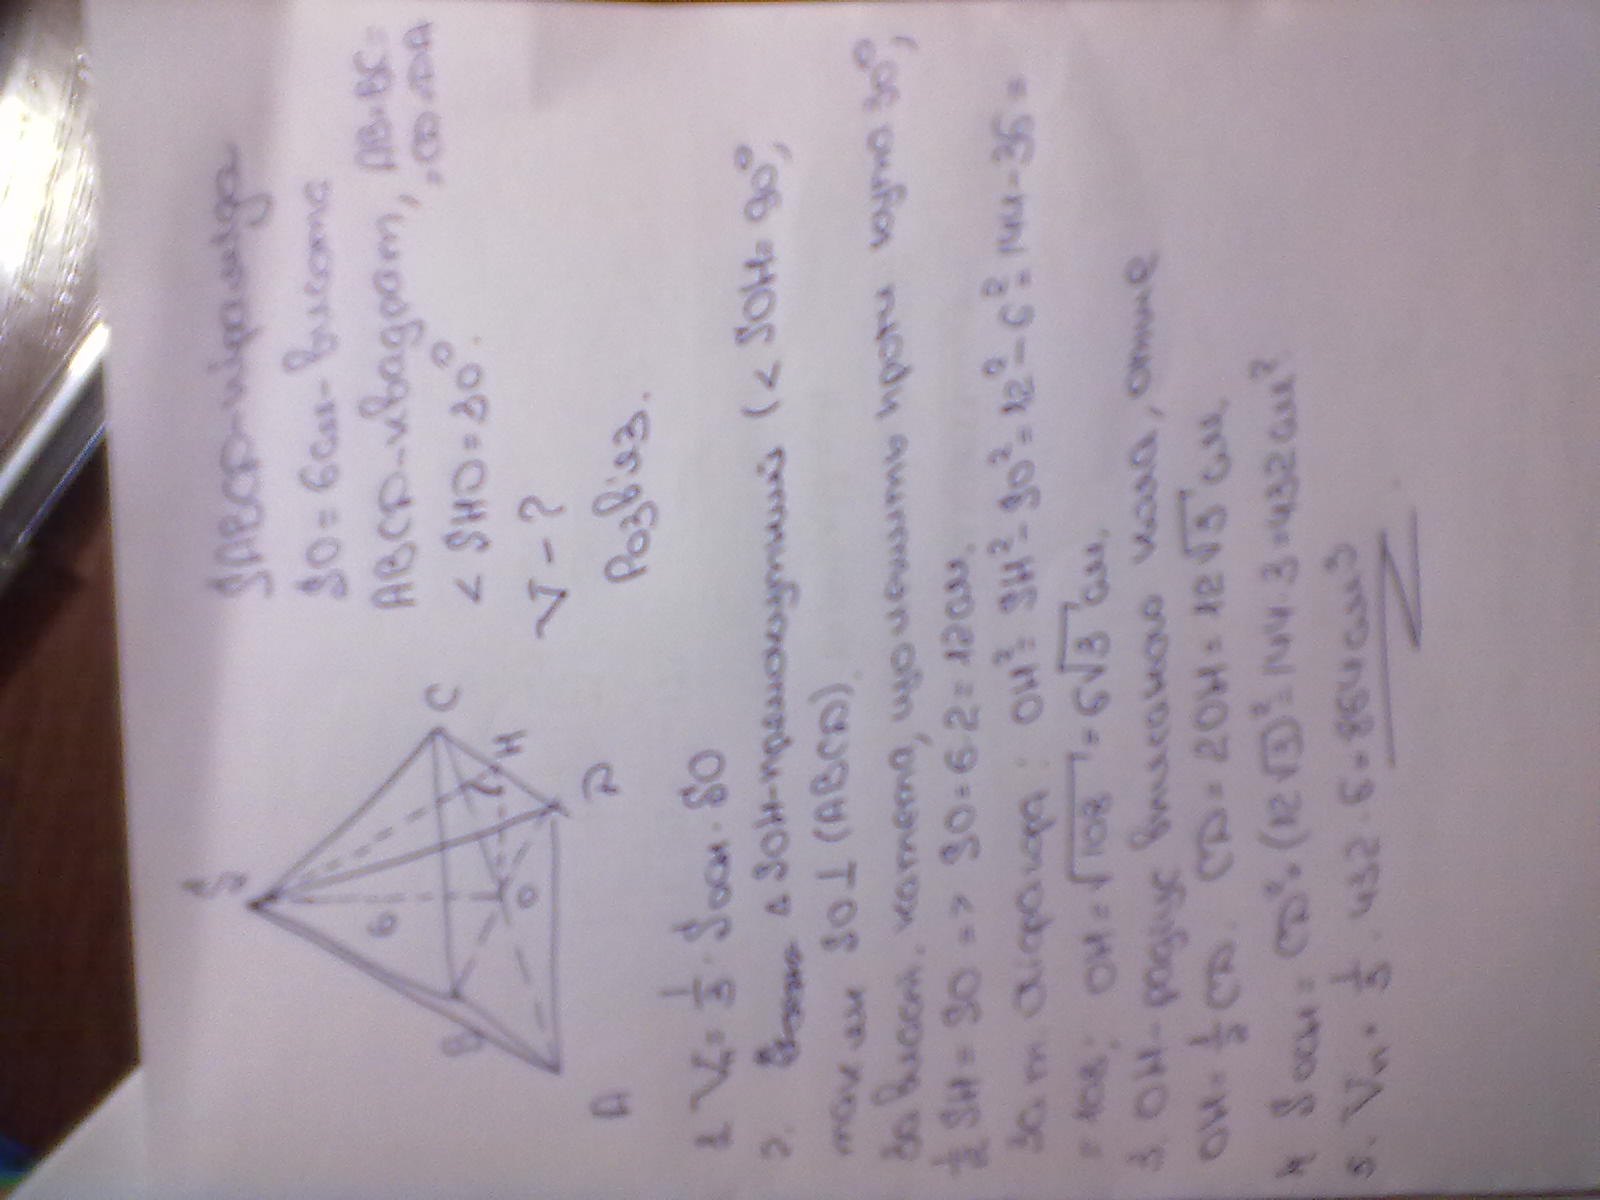 SABCD-піраміда
SO = 6см - висота
ABCD-квадрат, AB=BC=
=CD=DA
< SHO = 30°.
V - ?
Розв'яз.
S
6
B
C
H
O
A
D
1. Vп = 1/3 · Sосн · SO
2. Δ SOH-прямокутний (< SOH = 90°,
так як SO ⊥ (ABCD).
За власт. катета, що лежить проти кута 30°,
1/2 SH = SO => SO = 6·2 = 12см.
За т. Піфагора: OH² = SH² - SO² = 12² - 6² = 144 - 36 =
= 108; OH = √108 = 6√3 см.
3. OH - радіус вписаного кола, отже
OH = 1/2 CD. CD = 2OH = 12√3 см.
4. Sосн = CD² = (12√3)² = 144·3 = 432см².
5. Vп = 1/3 · 432 · 6 = 864см³